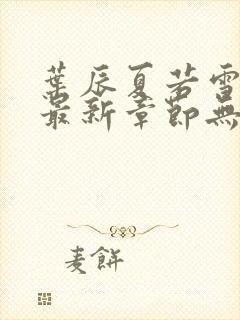 葉辰夏若雪
最新章節無
麦餅